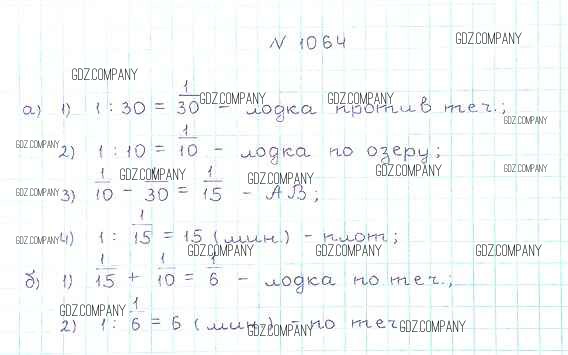 N 1064 GDZ.COMPANY
GDZ.COMPANY
а) 1) 1 : 30 = 1/30 – лодка против теч.; GDZ.COMPANY GDZ.COMPANY GDZ.COMPANY
GDZ.COMPANY 2) 1 : 10 = 1/10 – лодка по озеру;
GDZ.COMPANY GDZ.COMPANY GDZ.COMPANY GDZ.COMPANY
GDZ.COMPANY 3) 1/10 – 1/30 = 1/15 – АВ;
GDZ.COMPANY 4) 1 : 1/15 = 15 (мин.) – плот;
GDZ.COMPANY GDZ.COMPANY GDZ.COMPANY
б) 1) 1/15 + 1/10 = 1/6 – лодка по теч.;
GDZ.COMPANY
2) 1 : 1/6 = 6 (мин) – по теч. GDZ.COMPANY GDZ.COMPANY